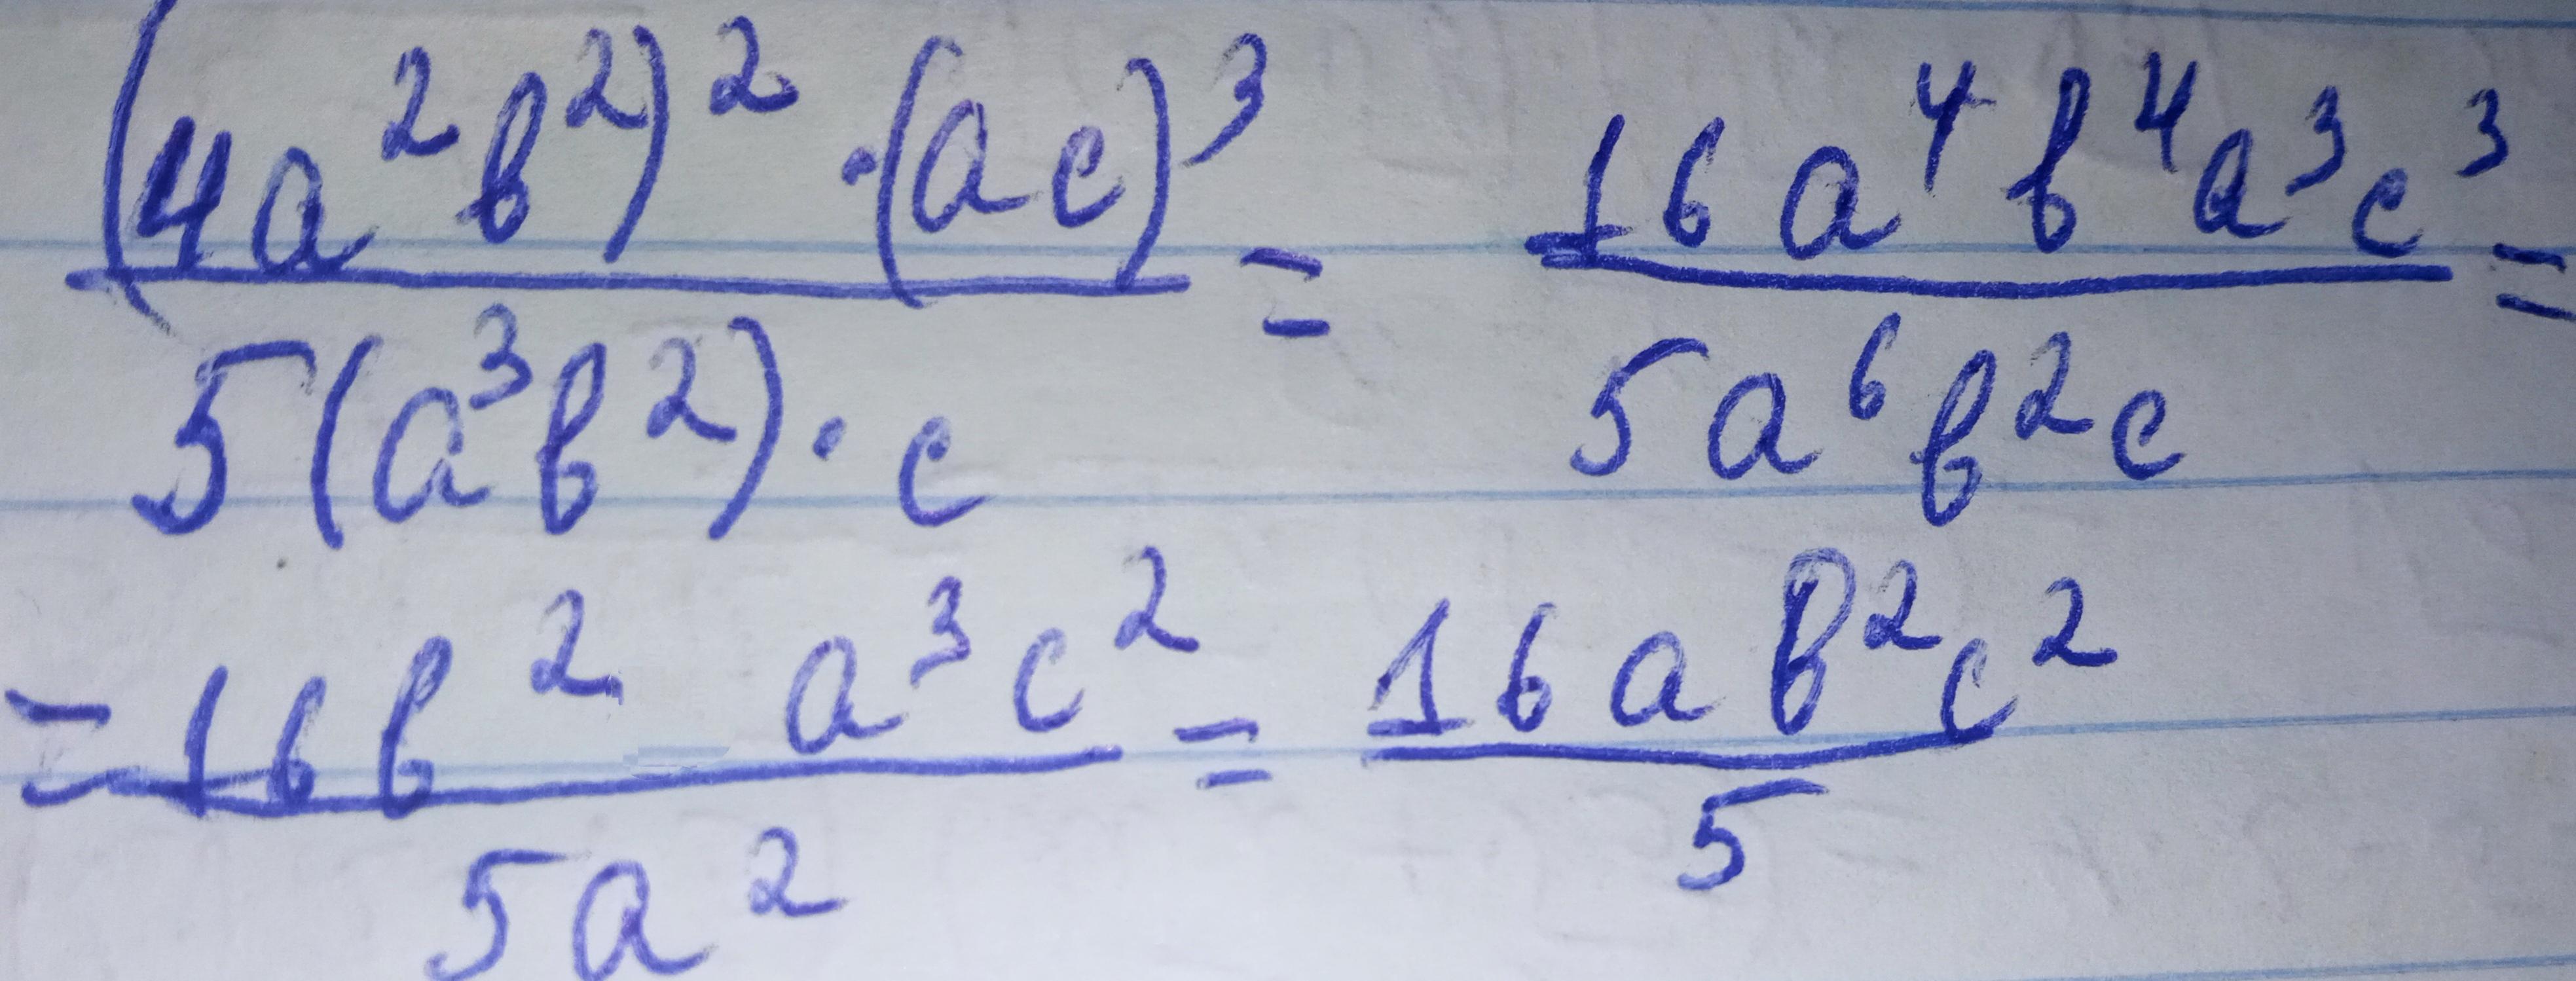 (4a²b²)² · (ac)³ / 5(a³b²) · c = 16a⁴b⁴a³c³ / 5a⁶b²c =
= 16b² a³c² / 5a² = 16ab²c² / 5